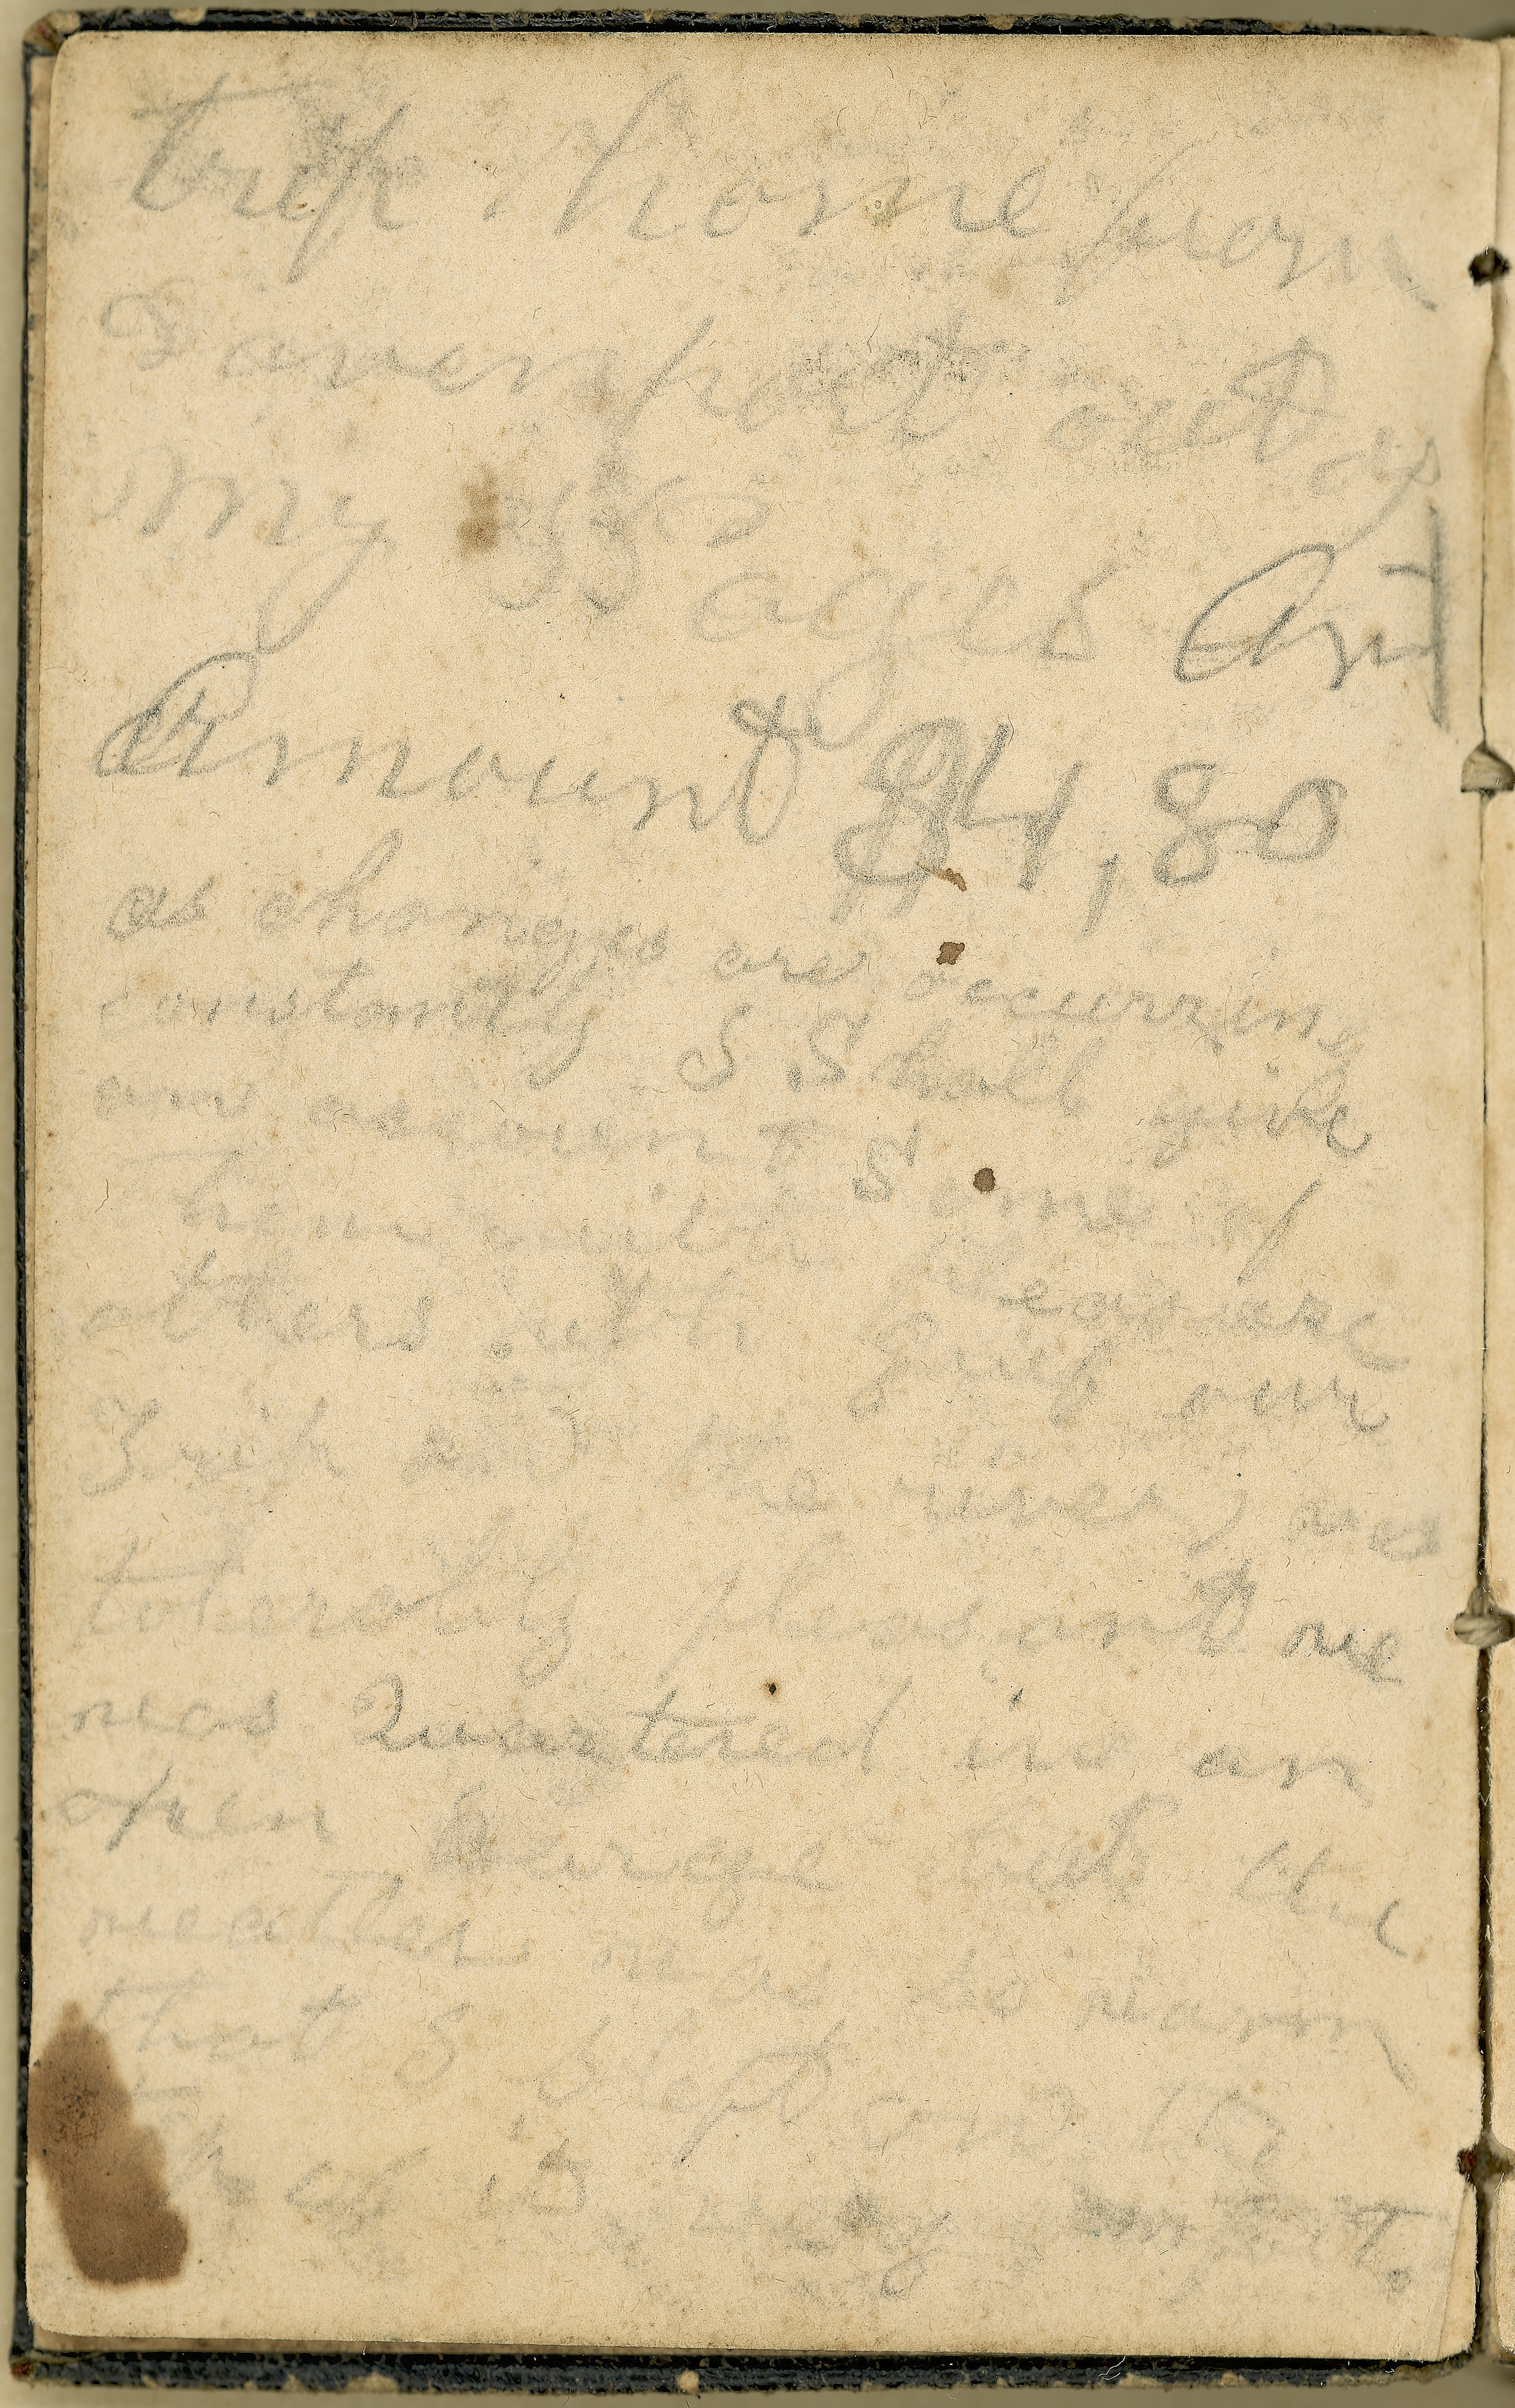 trip home from
Davenport out of
my Wages And
Amount $4,80
as changes are occurring
constantly I Shall give
an account Some of
them with Pleasure
others with grief our
Trip on the river was
tolerably pleasant we
was Quartered in an
open barge but the
weather was so warm
that I slept on the
in my